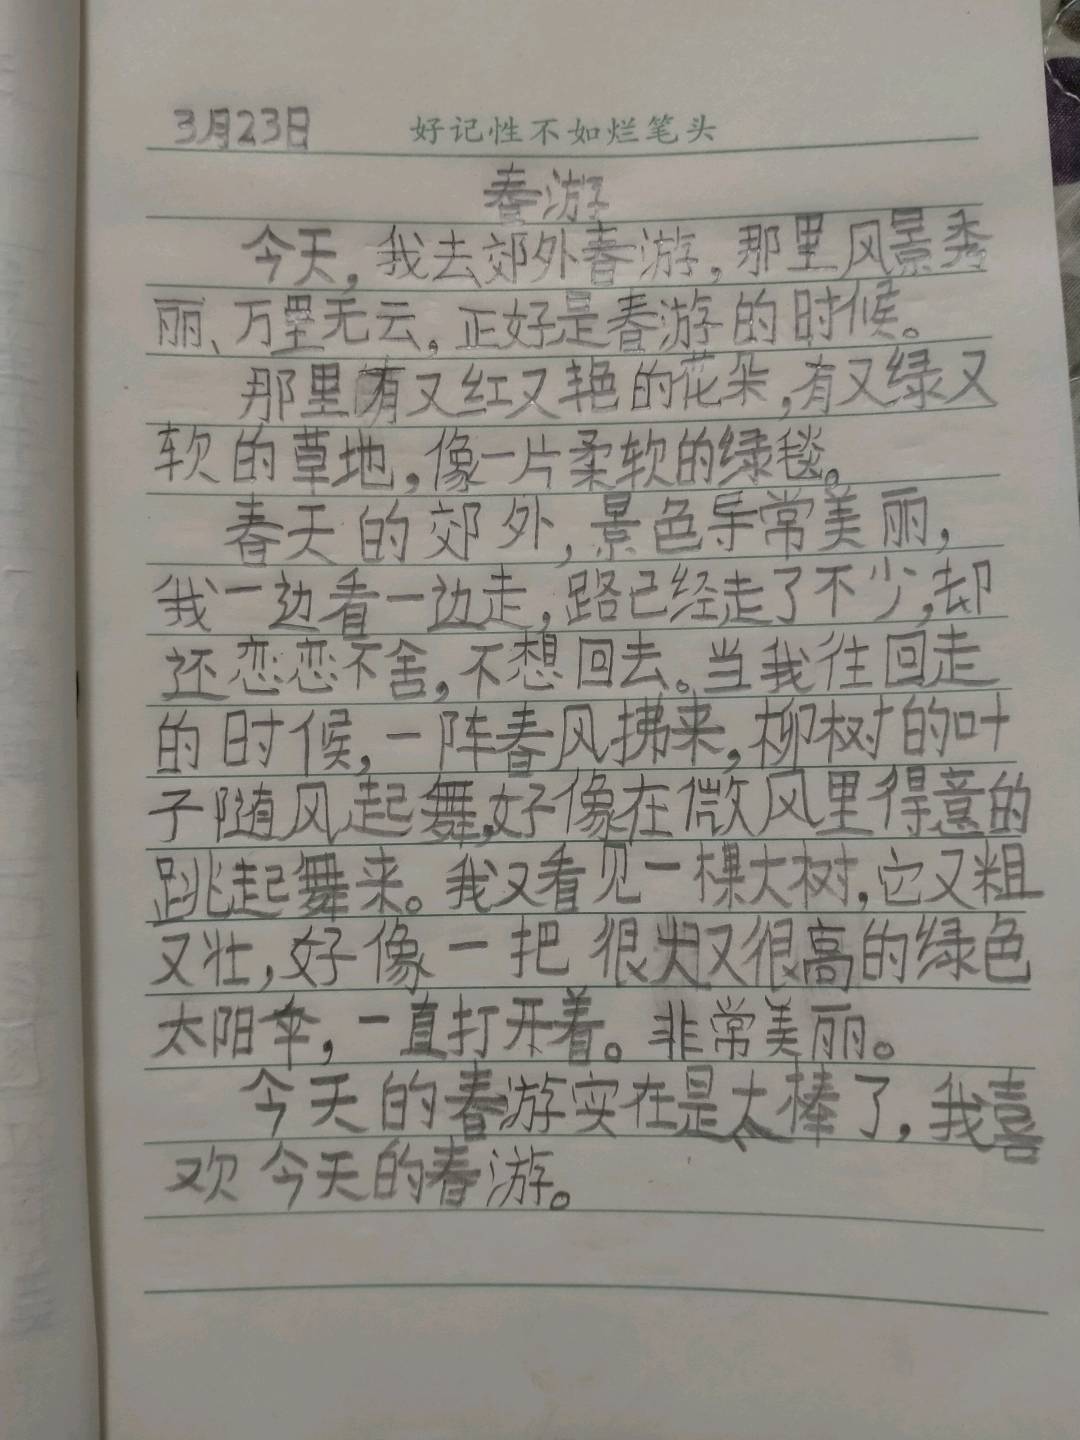 3月23日 好记性不如烂笔头
春游
今天，我去郊外春游，那里风景秀
丽、万里无云，正好是春游的时候。
那里有又红又艳的花朵，有又绿又
软的草地，像一片柔软的绿毯。
春天的郊外，景色异常美丽，
我一边看一边走，路已经走了不少，却
还恋恋不舍，不想回去。当我往回走
的时候，一阵春风拂来，柳树的叶
子随风起舞，好像在微风里得意的
跳起舞来。我又看见一棵大树，它又粗
又壮，好像一把很大又很高的绿色
太阳伞，一直打开着。非常美丽。
今天的春游实在是太棒了，我喜
欢今天的春游。